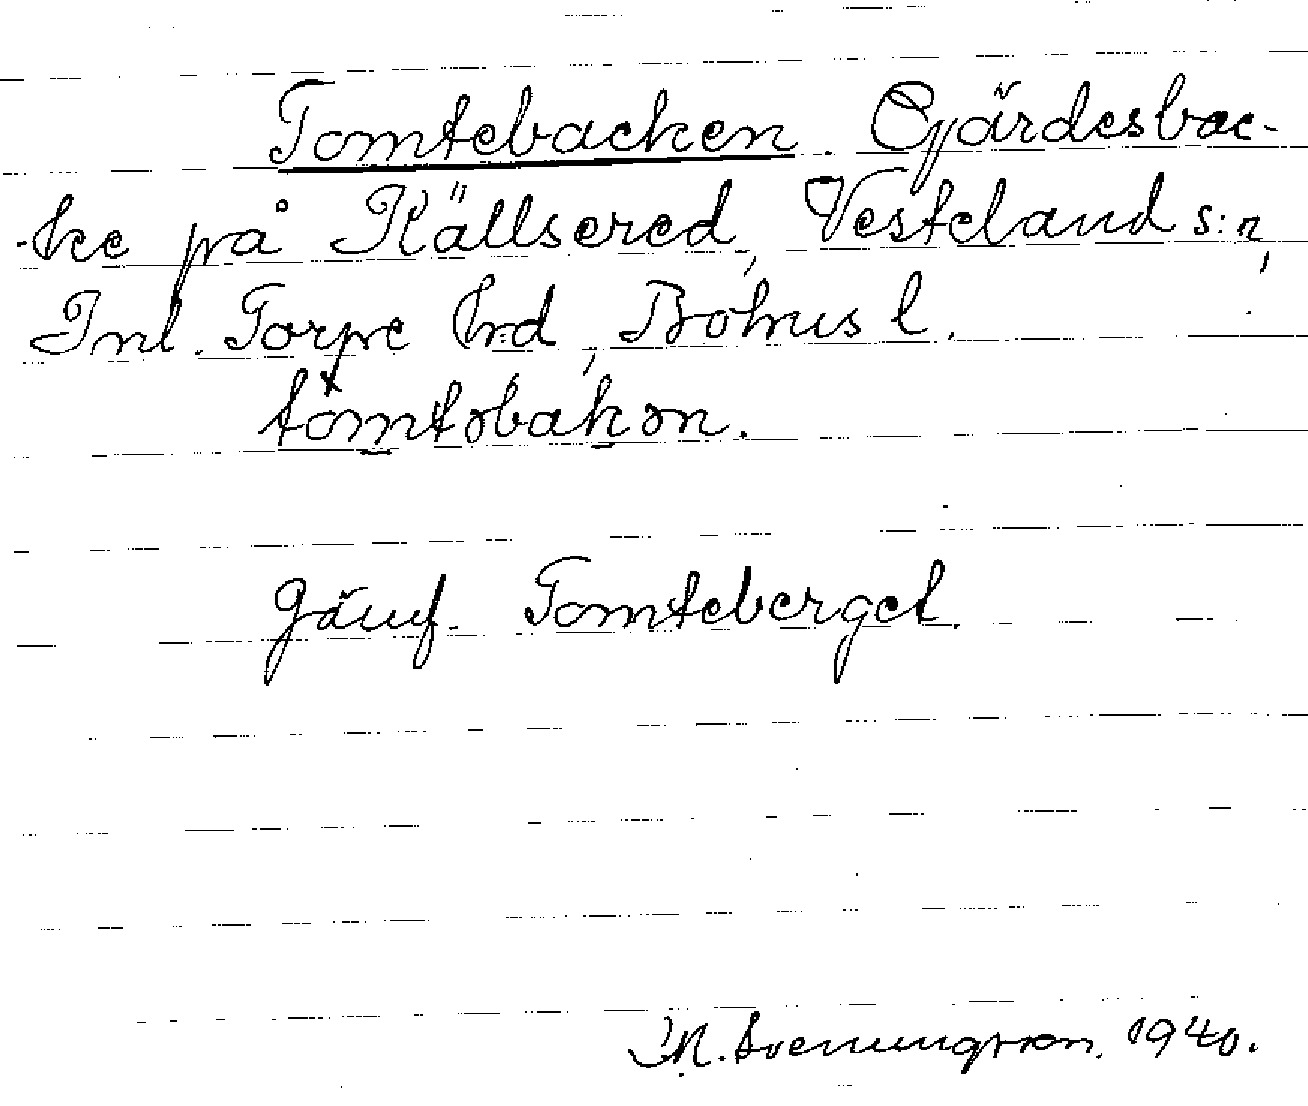 Tomtebacken. Gjärdesbac-
ke på Källsered, Vesteland s:n,
Inl. Torpe hd, Bohus l.
tòmtəbakən.
Jämf. Tomteberget.
M. Svenungsson. 1940.